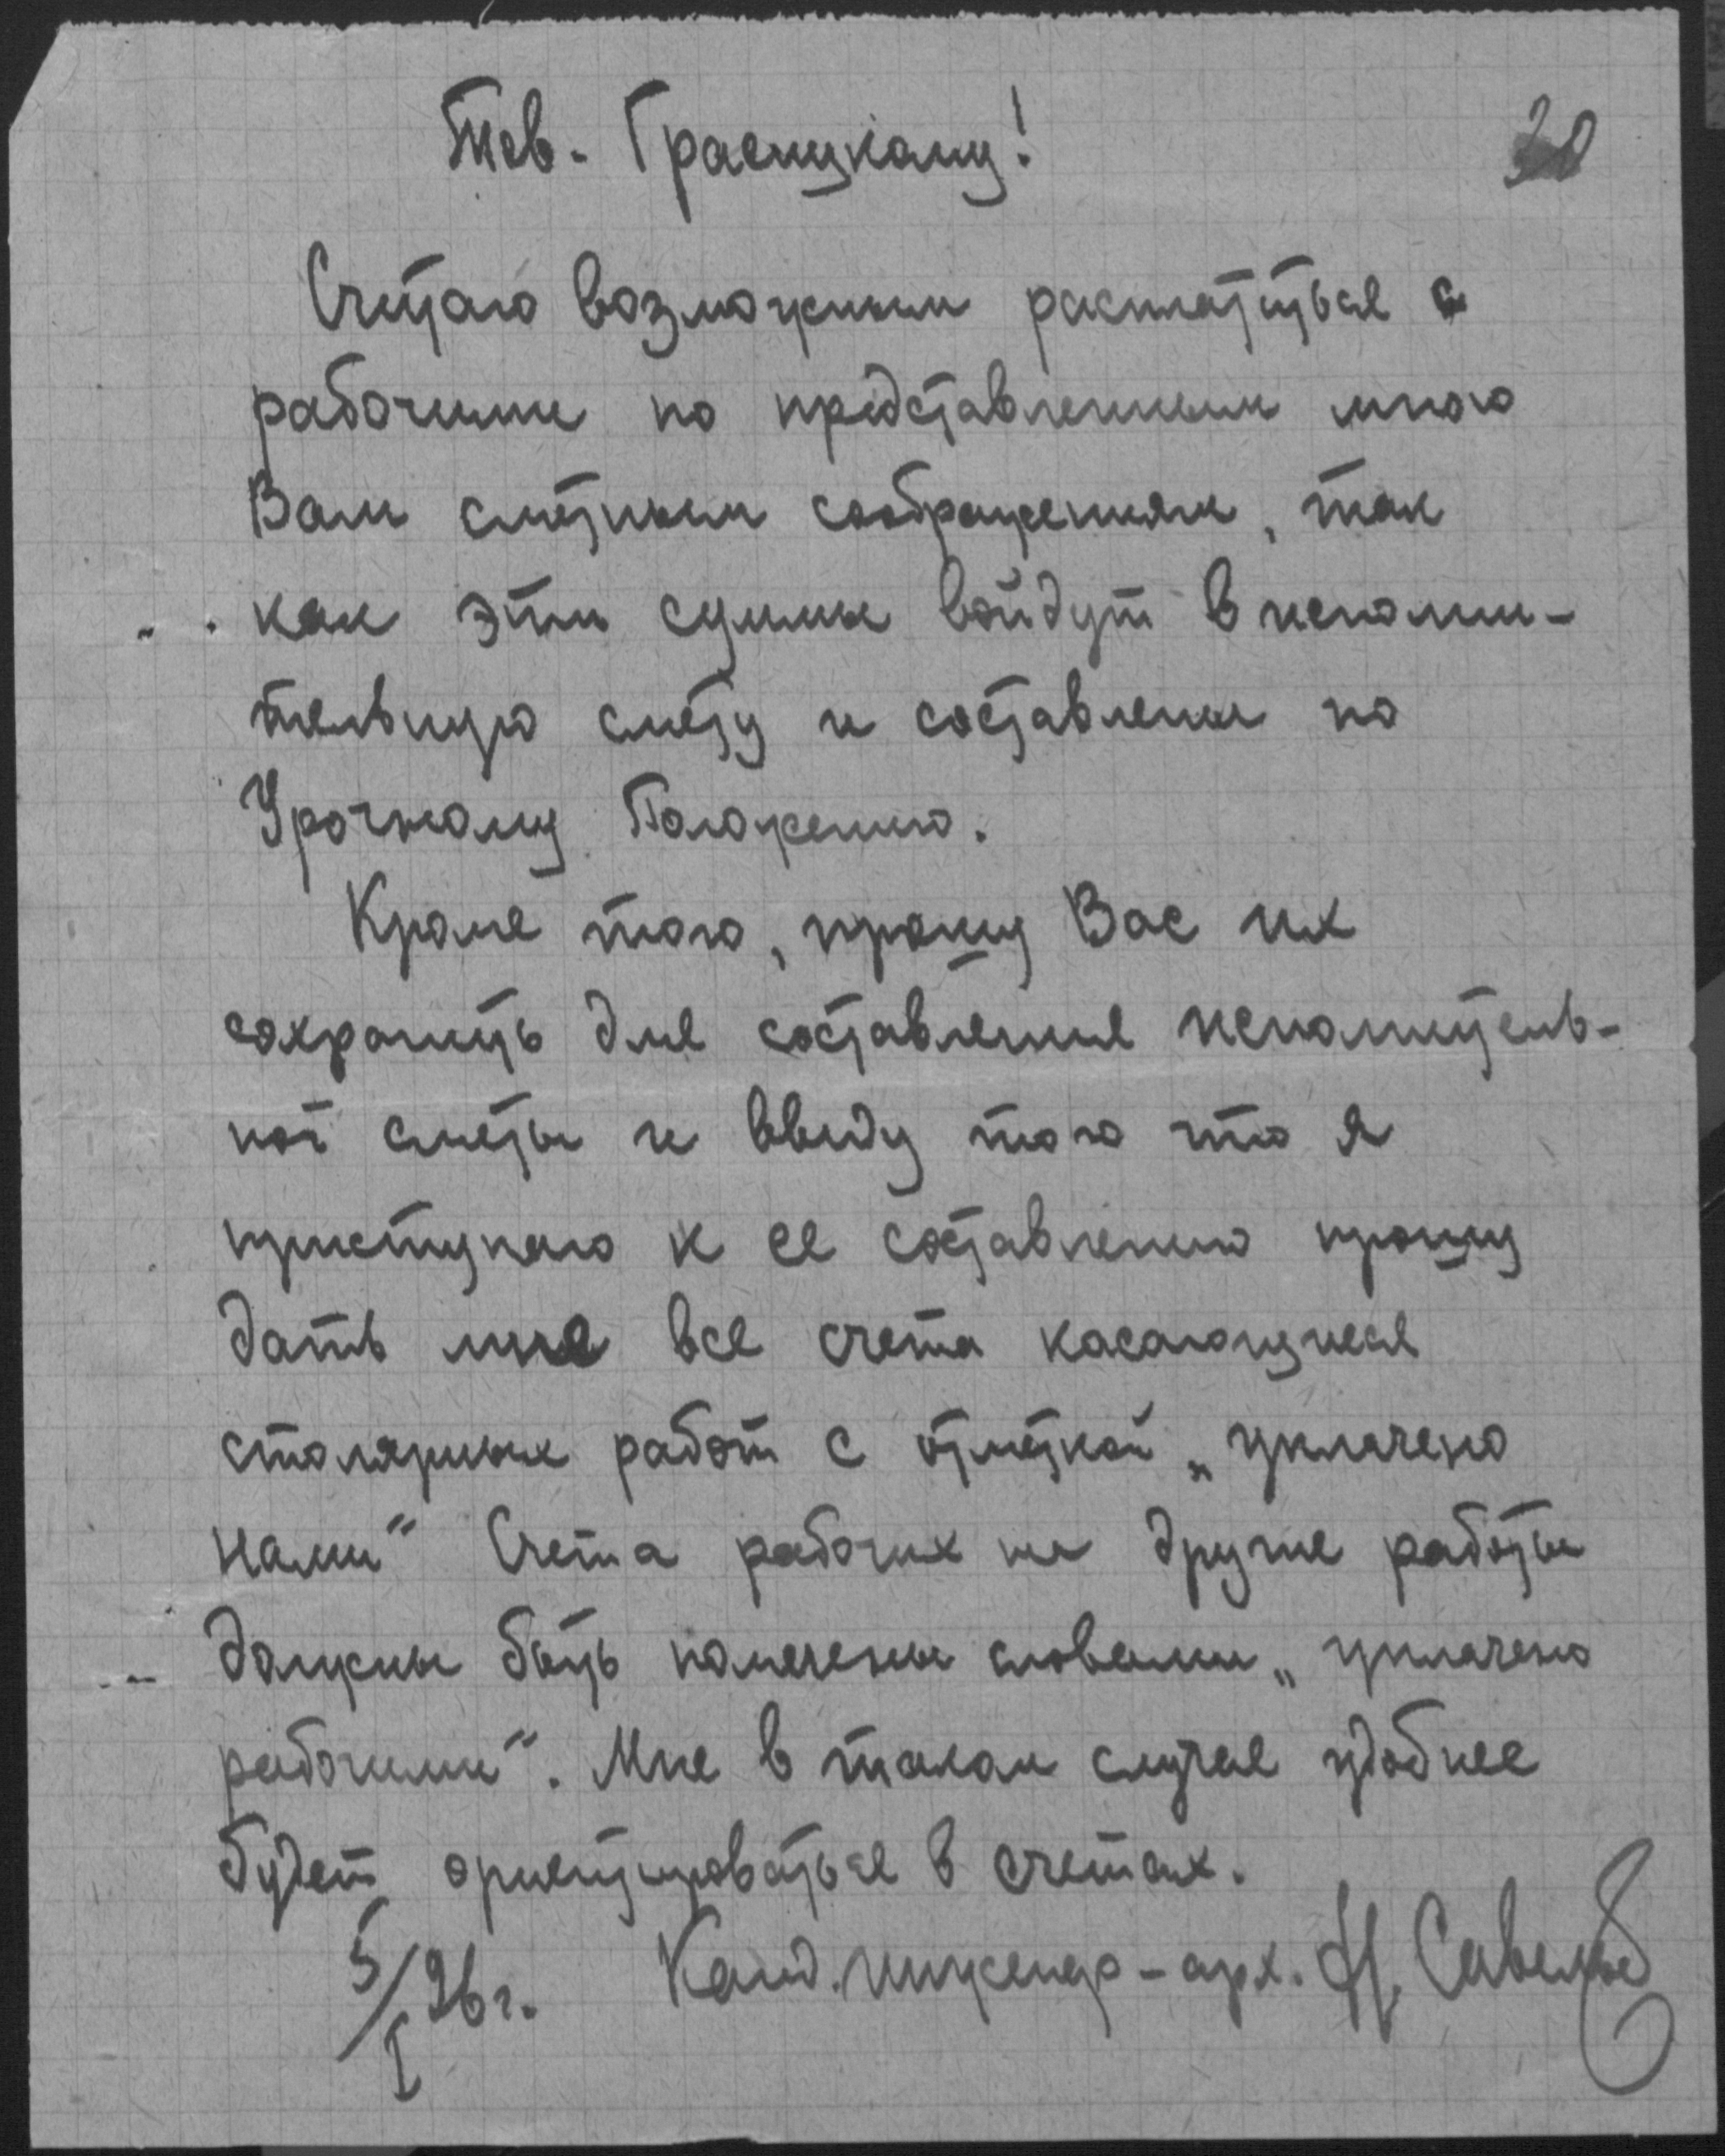 Тов. Граецкому!
20
Считаю возможным расплатиться с
рабочими по представленным мною
Вам сметным соображениям, так
как эти суммы войдут в исполни-
тельную смету и составлены по
Урочному Положению.
Кроме того, прошу Вас их
сохранить для составления исполнитель-
ной сметы и ввиду того что я
приступаю к ее составлению прошу
дать мне все счета касающиеся
столярных работ с отметкой „уплачено
нами“ Счета рабочих на другие работы
должны быть помечены словами „уплачено
рабочими“. Мне в таком случае удобнее
будет ориентироваться в счетах.
5/I 26 г. Канд. инженер-арх. Н. Савельев